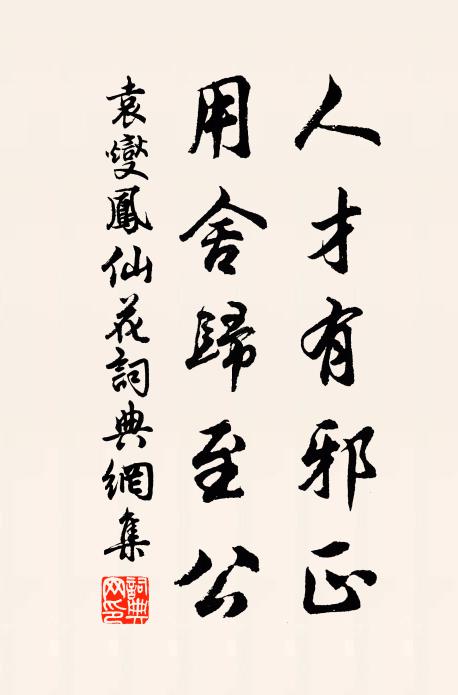 人才有邪正
用舍歸至公
袁燮鳳仙花詞典網集
詞典網印